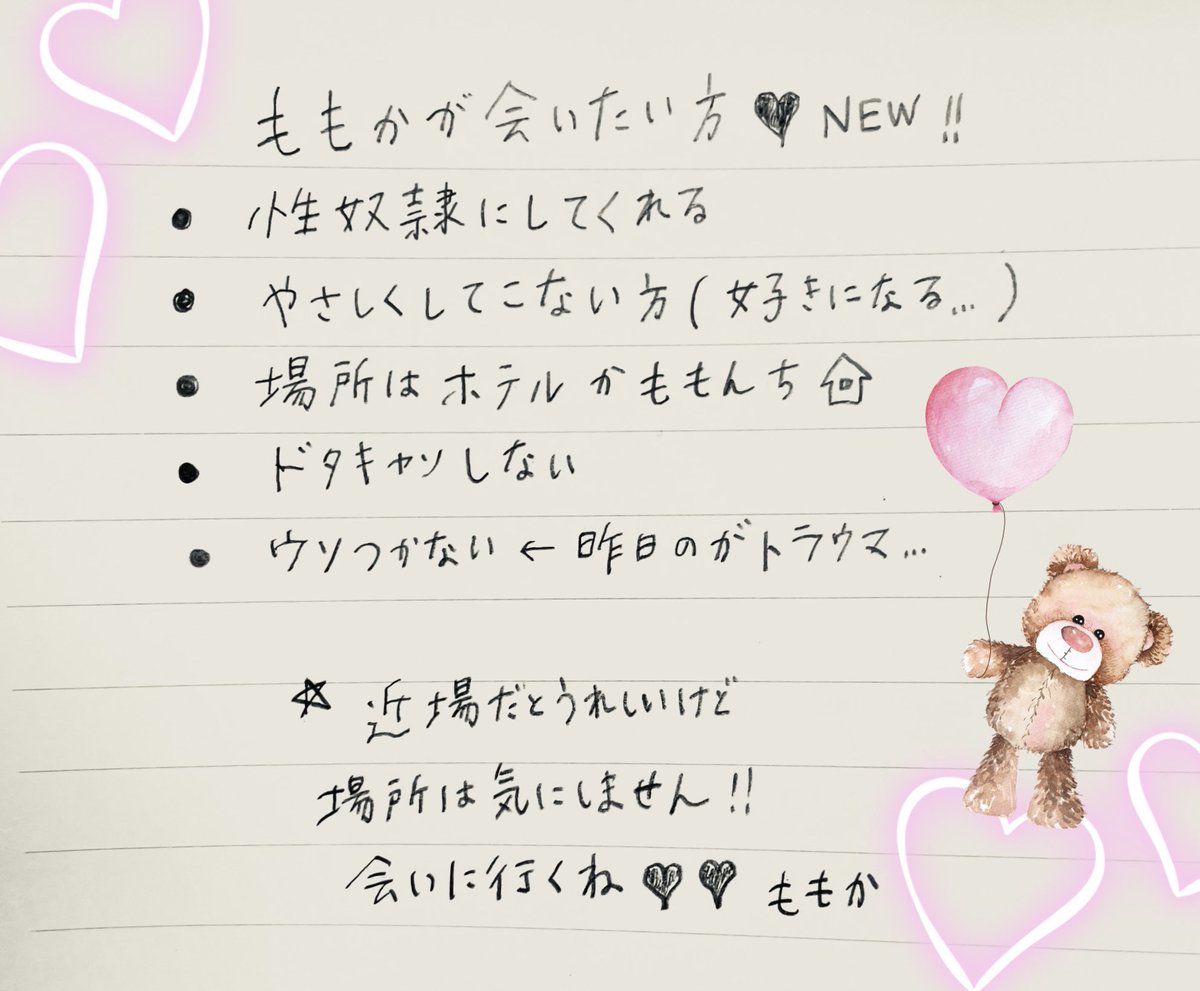 ももかが会いたい方♥NEW!!
• 性奴隷にしてくれる
• やさしくしてこない方(好きになる...)
• 場所はホテルかももんち
• ドタキャンしない
• ウソつかない←昨日のがトラウマ...
☆近場だとうれしいけど
場所は気にしません!!
会いに行くね♥♥ ももか